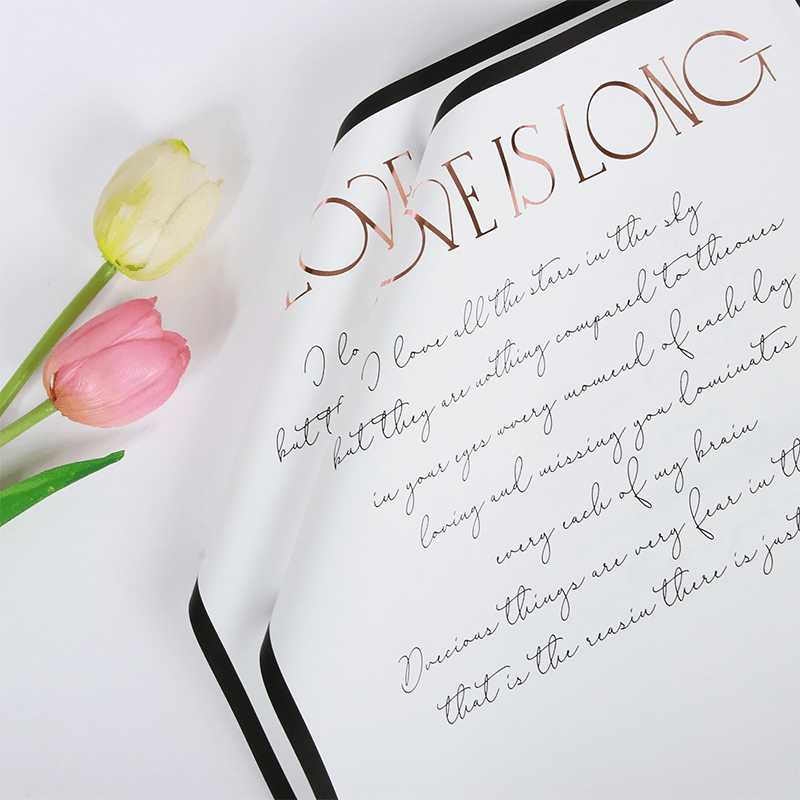 LOVE
LOVE IS LONG
I lo
but t
I love all the stars in the sky
but they are nothing compared to theones
in your eyes wvery momend of each day
loving and missing you dominates
every each of my brain
Dvecious things are very fear in th
that is the reasiu there is just